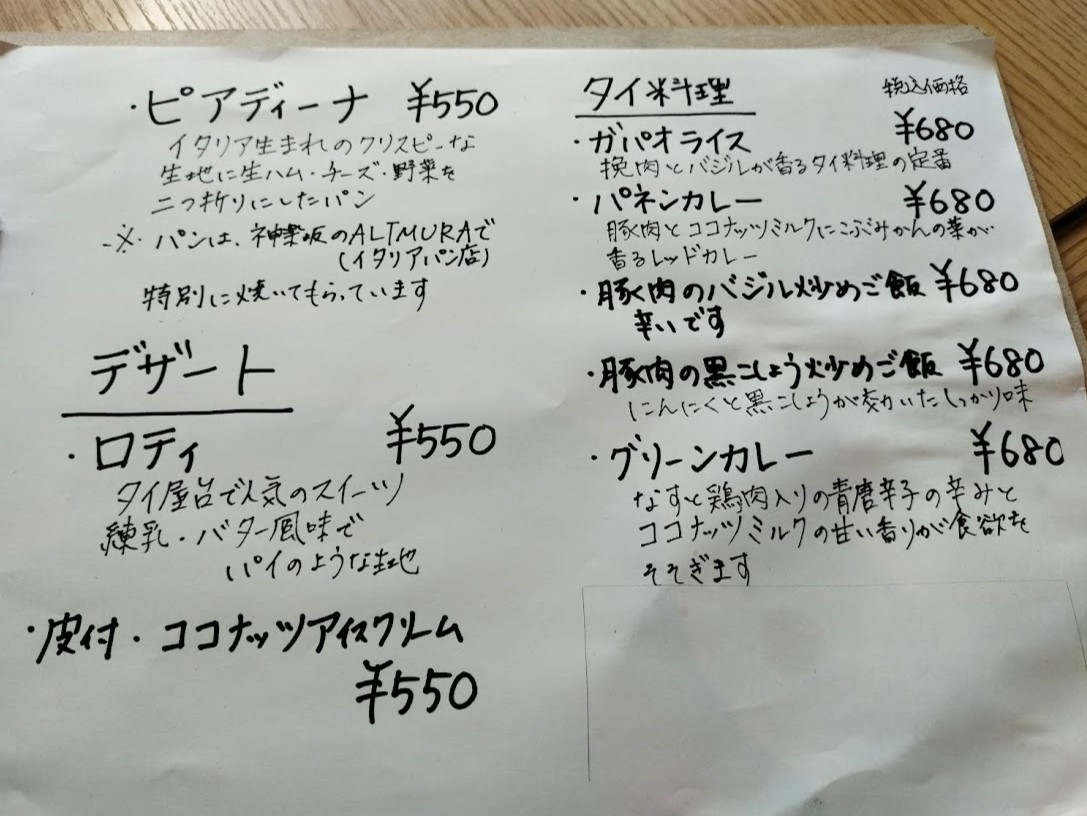 ・ピアディーナ ¥550
イタリア生まれのクリスピーな
生地に生ハム・チーズ・野菜を
二つ折りにしたパン
※パンは、神楽坂のALTMURAで
(イタリアパン店)
特別に焼いてもらっています
デザート
・ロティ ¥550
タイ屋台で人気のスイーツ
練乳・バター風味で
パイのような生地
・皮付・ココナッツアイスクリーム
¥550
タイ料理 税込価格
・ガパオライス ¥680
挽肉とバジルが香るタイ料理の定番
・パネンカレー ¥680
豚肉とココナッツミルクにこぶみかんの葉が
香るレッドカレー
・豚肉のバジル炒めご飯 ¥680
辛いです
・豚肉の黒こしょう炒めご飯 ¥680
にんにくと黒こしょうが効いたしっかり味
・グリーンカレー ¥680
なすと鶏肉入りの青唐辛子の辛みと
ココナッツミルクの甘い香りが食欲を
そそぎます